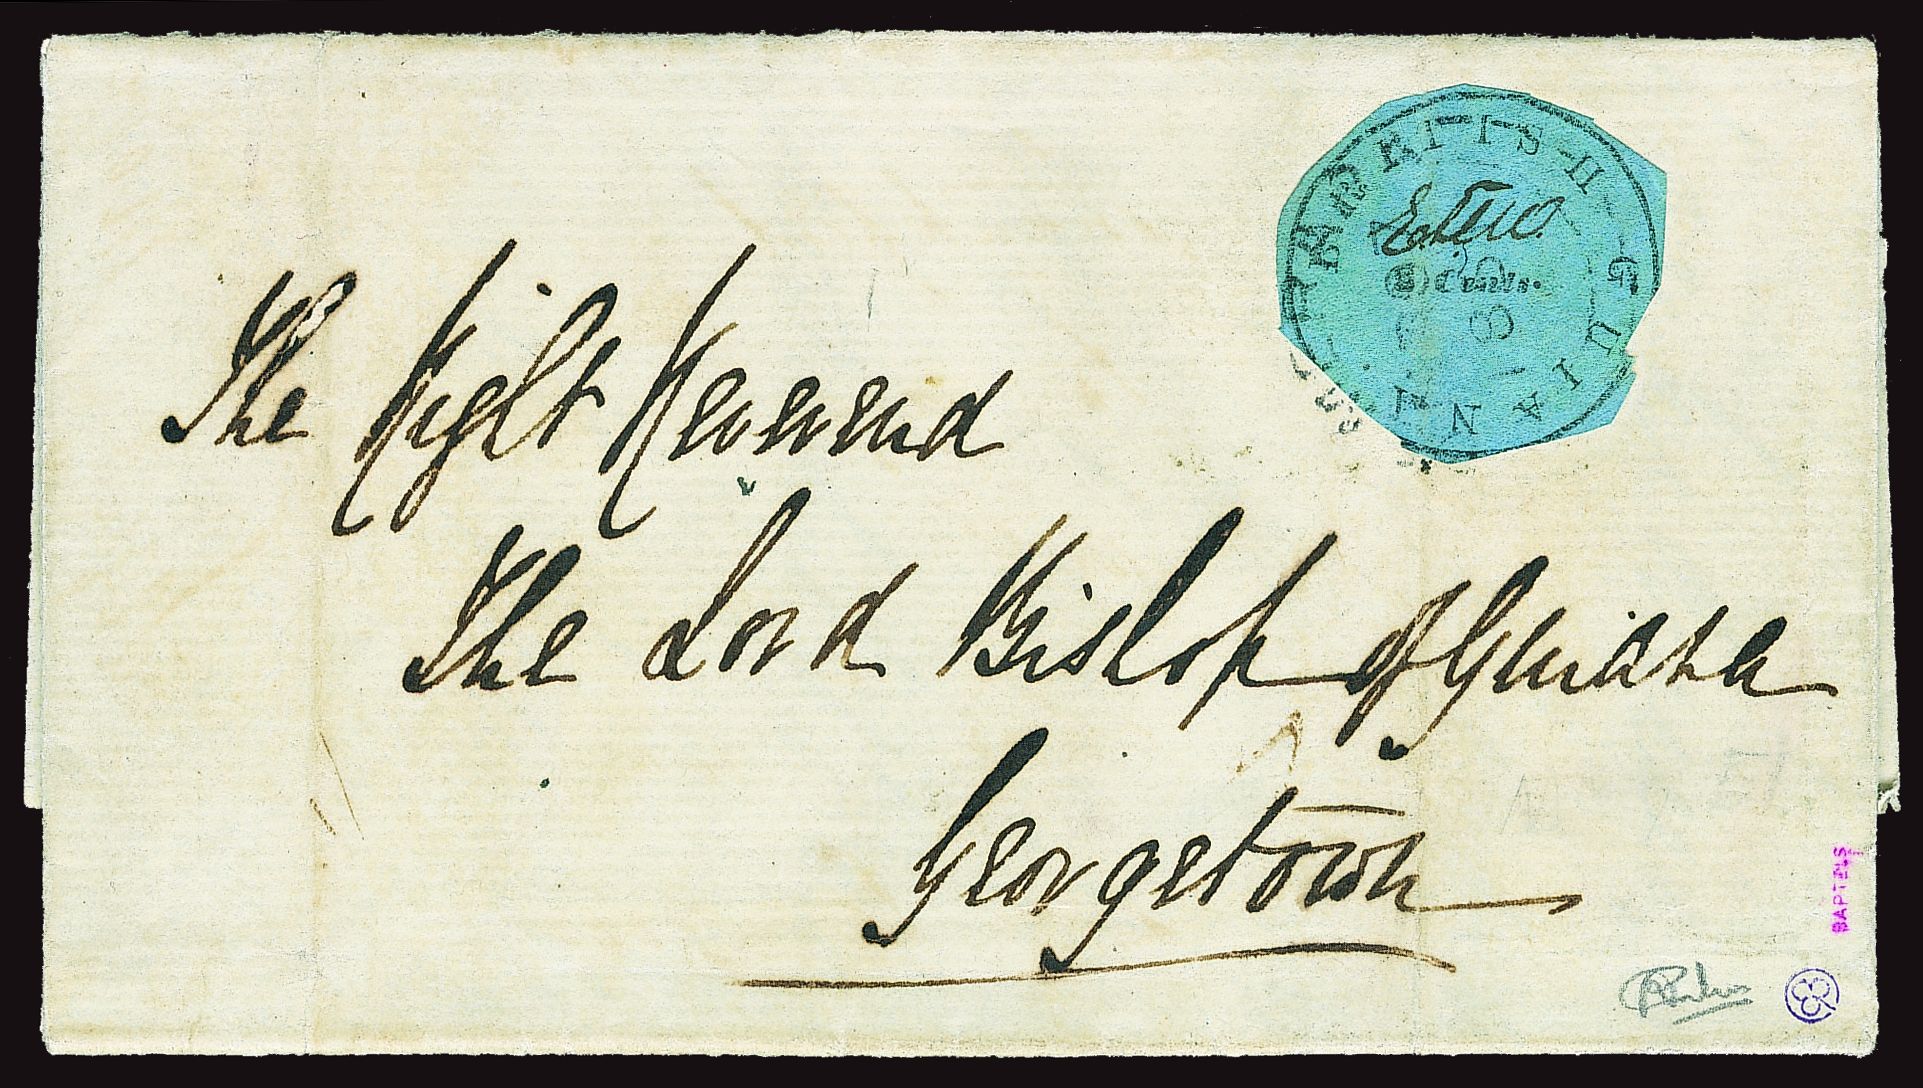 BRITISH GUIANA.
12 Cents.
The Right Reverend
The Lord Bishop of Guiana
Georgetown